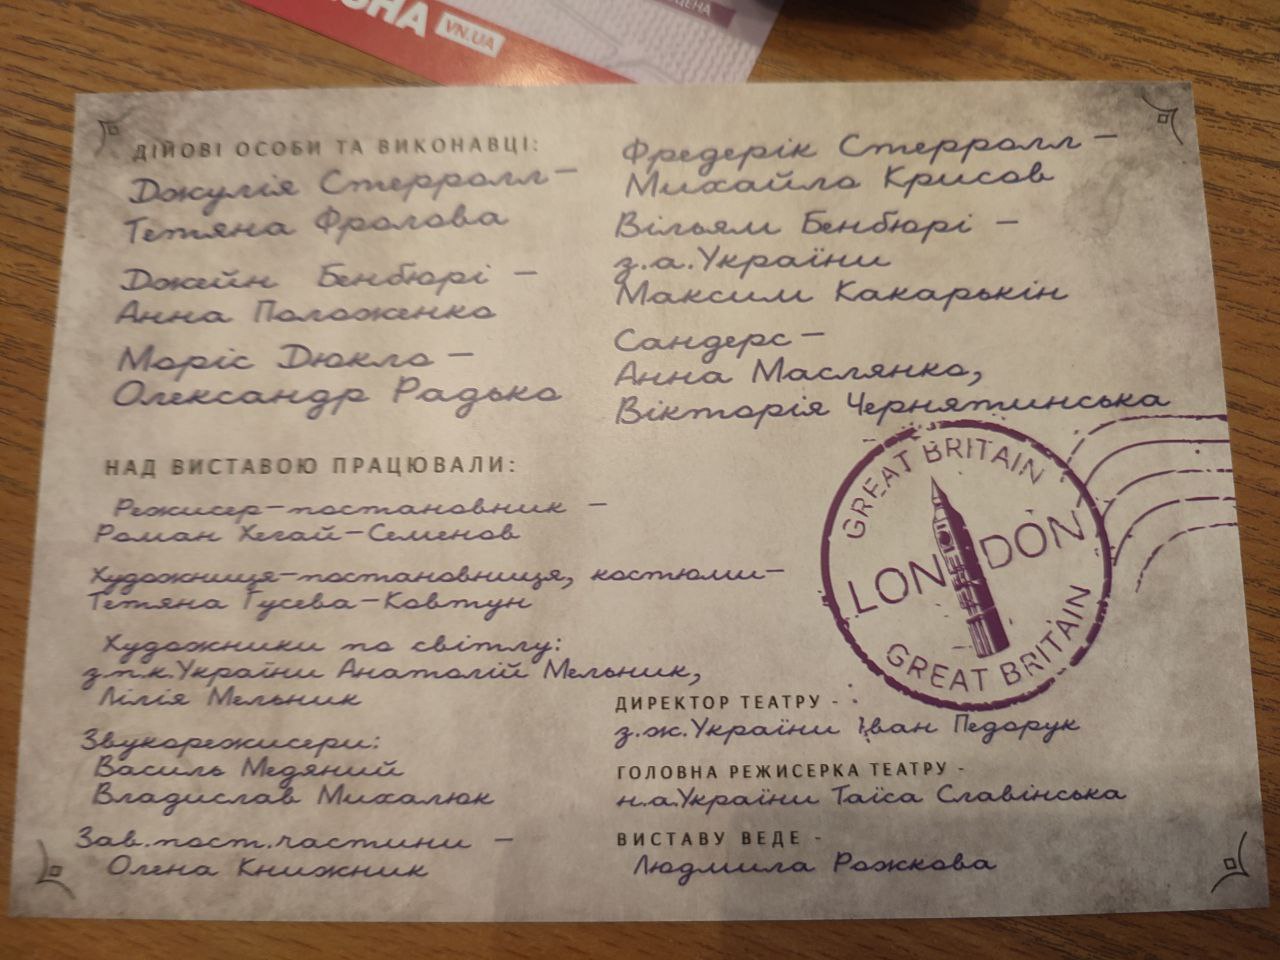 VN.UA
ДІЙОВІ ОСОБИ ТА ВИКОНАВЦІ:
Джулія Стерролл –
Тетяна Фролова
Джейн Бенбюрі –
Анна Положенко
Моріс Дюкло –
Олександр Радько
Фредерік Стерролл –
Михайло Крисов
Вільям Бенбюрі –
з.а.України
Максим Какарькін
Сандерс –
Анна Маслянко,
Вікторія Чернятинська
НАД ВИСТАВОЮ ПРАЦЮВАЛИ:
Режисер-постановник –
Роман Хегай-Семенов
Художниця-постановниця, костюми–
Тетяна Гусева-Ковтун
Художники по світлу:
з.п.к.України Анатолій Мельник,
Лілія Мельник
Звукорежисери:
Василь Медяний
Владислав Михалюк
Зав.пост.частини –
Олена Книжник
GREAT BRITAIN
LONDON
GREAT BRITAIN
ДИРЕКТОР ТЕАТРУ -
з.ж.України Іван Педорук
ГОЛОВНА РЕЖИСЕРКА ТЕАТРУ -
н.а.України Таїса Славінська
ВИСТАВУ ВЕДЕ -
Людмила Рожкова